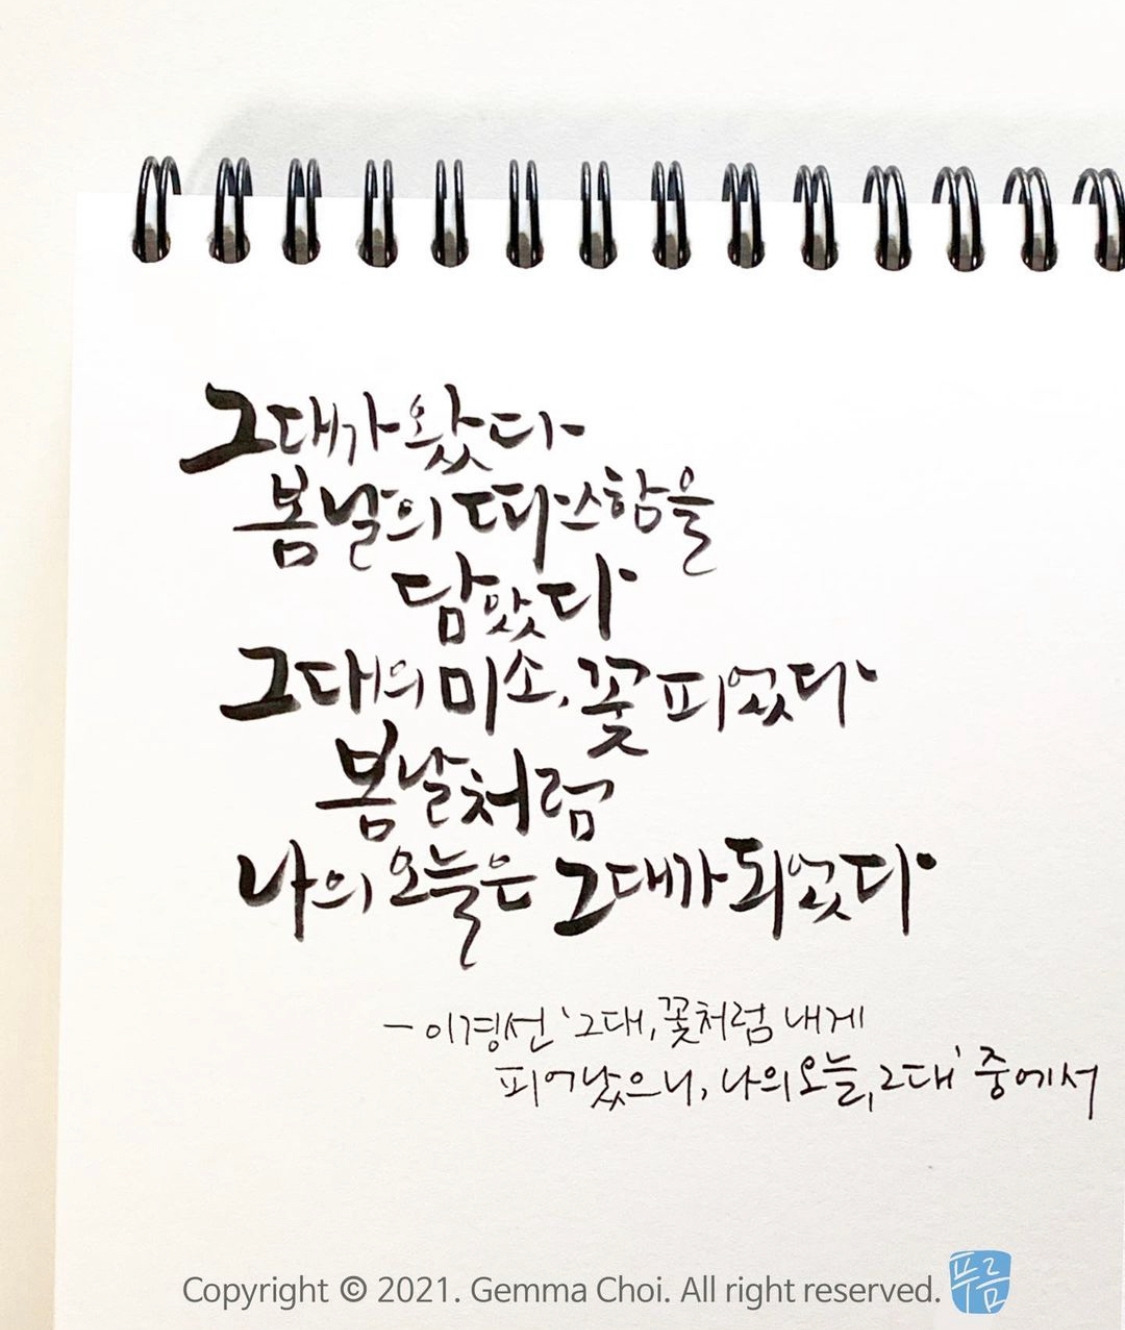 그대가 왔다
봄날의 따스함을
담았다
그대의 미소, 꽃 피었다
봄날처럼
나의 오늘은 그대가 되었다
- 이경선 '그대, 꽃처럼 내게
피어났으니, 나의 오늘, 그대' 중에서
Copyright © 2021. Gemma Choi. All right reserved.
푸름